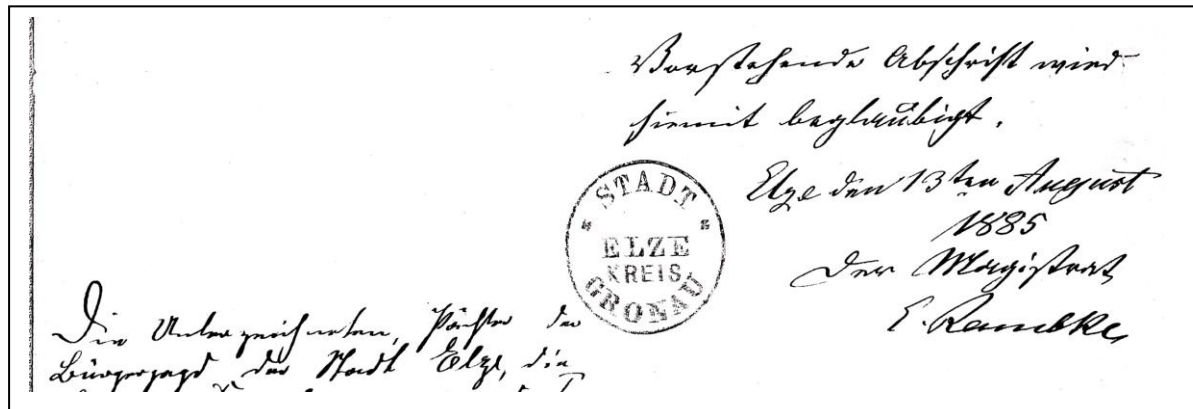 Vorstehende Abschrift wird
hiemit beglaubigt.
Elze den 13ten August
1885
Der Magistrat
E.
STADT
ELZE
KREIS
GRONAU
Die Unterzeichneten, Pächter der
Bürgerjagd der Stadt Elze, die